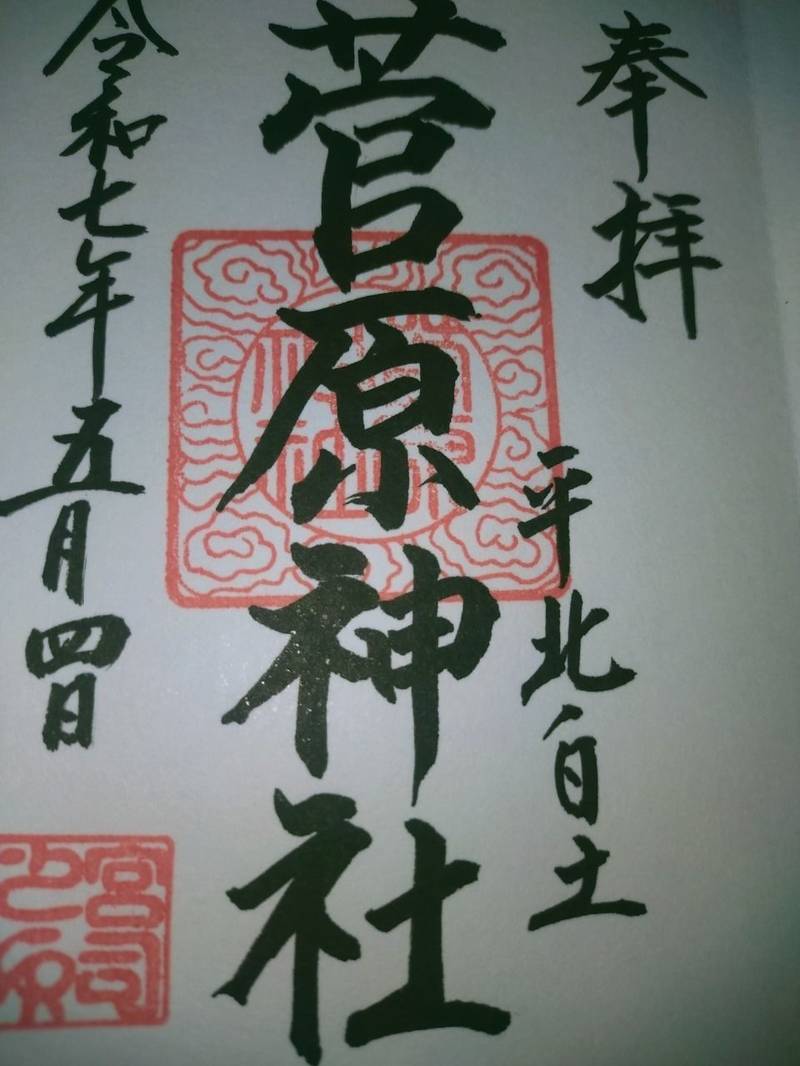 奉拝
平北白土
菅原神社
令和七年五月四日
宮司之印